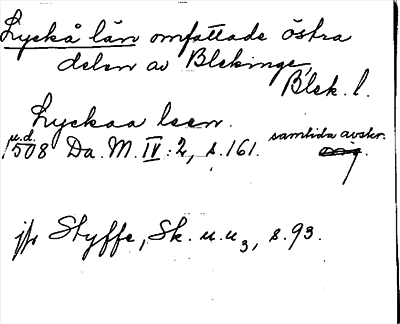 Lyckå län omfattade östra
delen av Blekinge
Blek. l.
Lyckaa leen.
u.d.
1508 Da. M. IV: 2, s. 161. samtida avskr.
jfr Styffe, Sk. u. u3, s. 93.